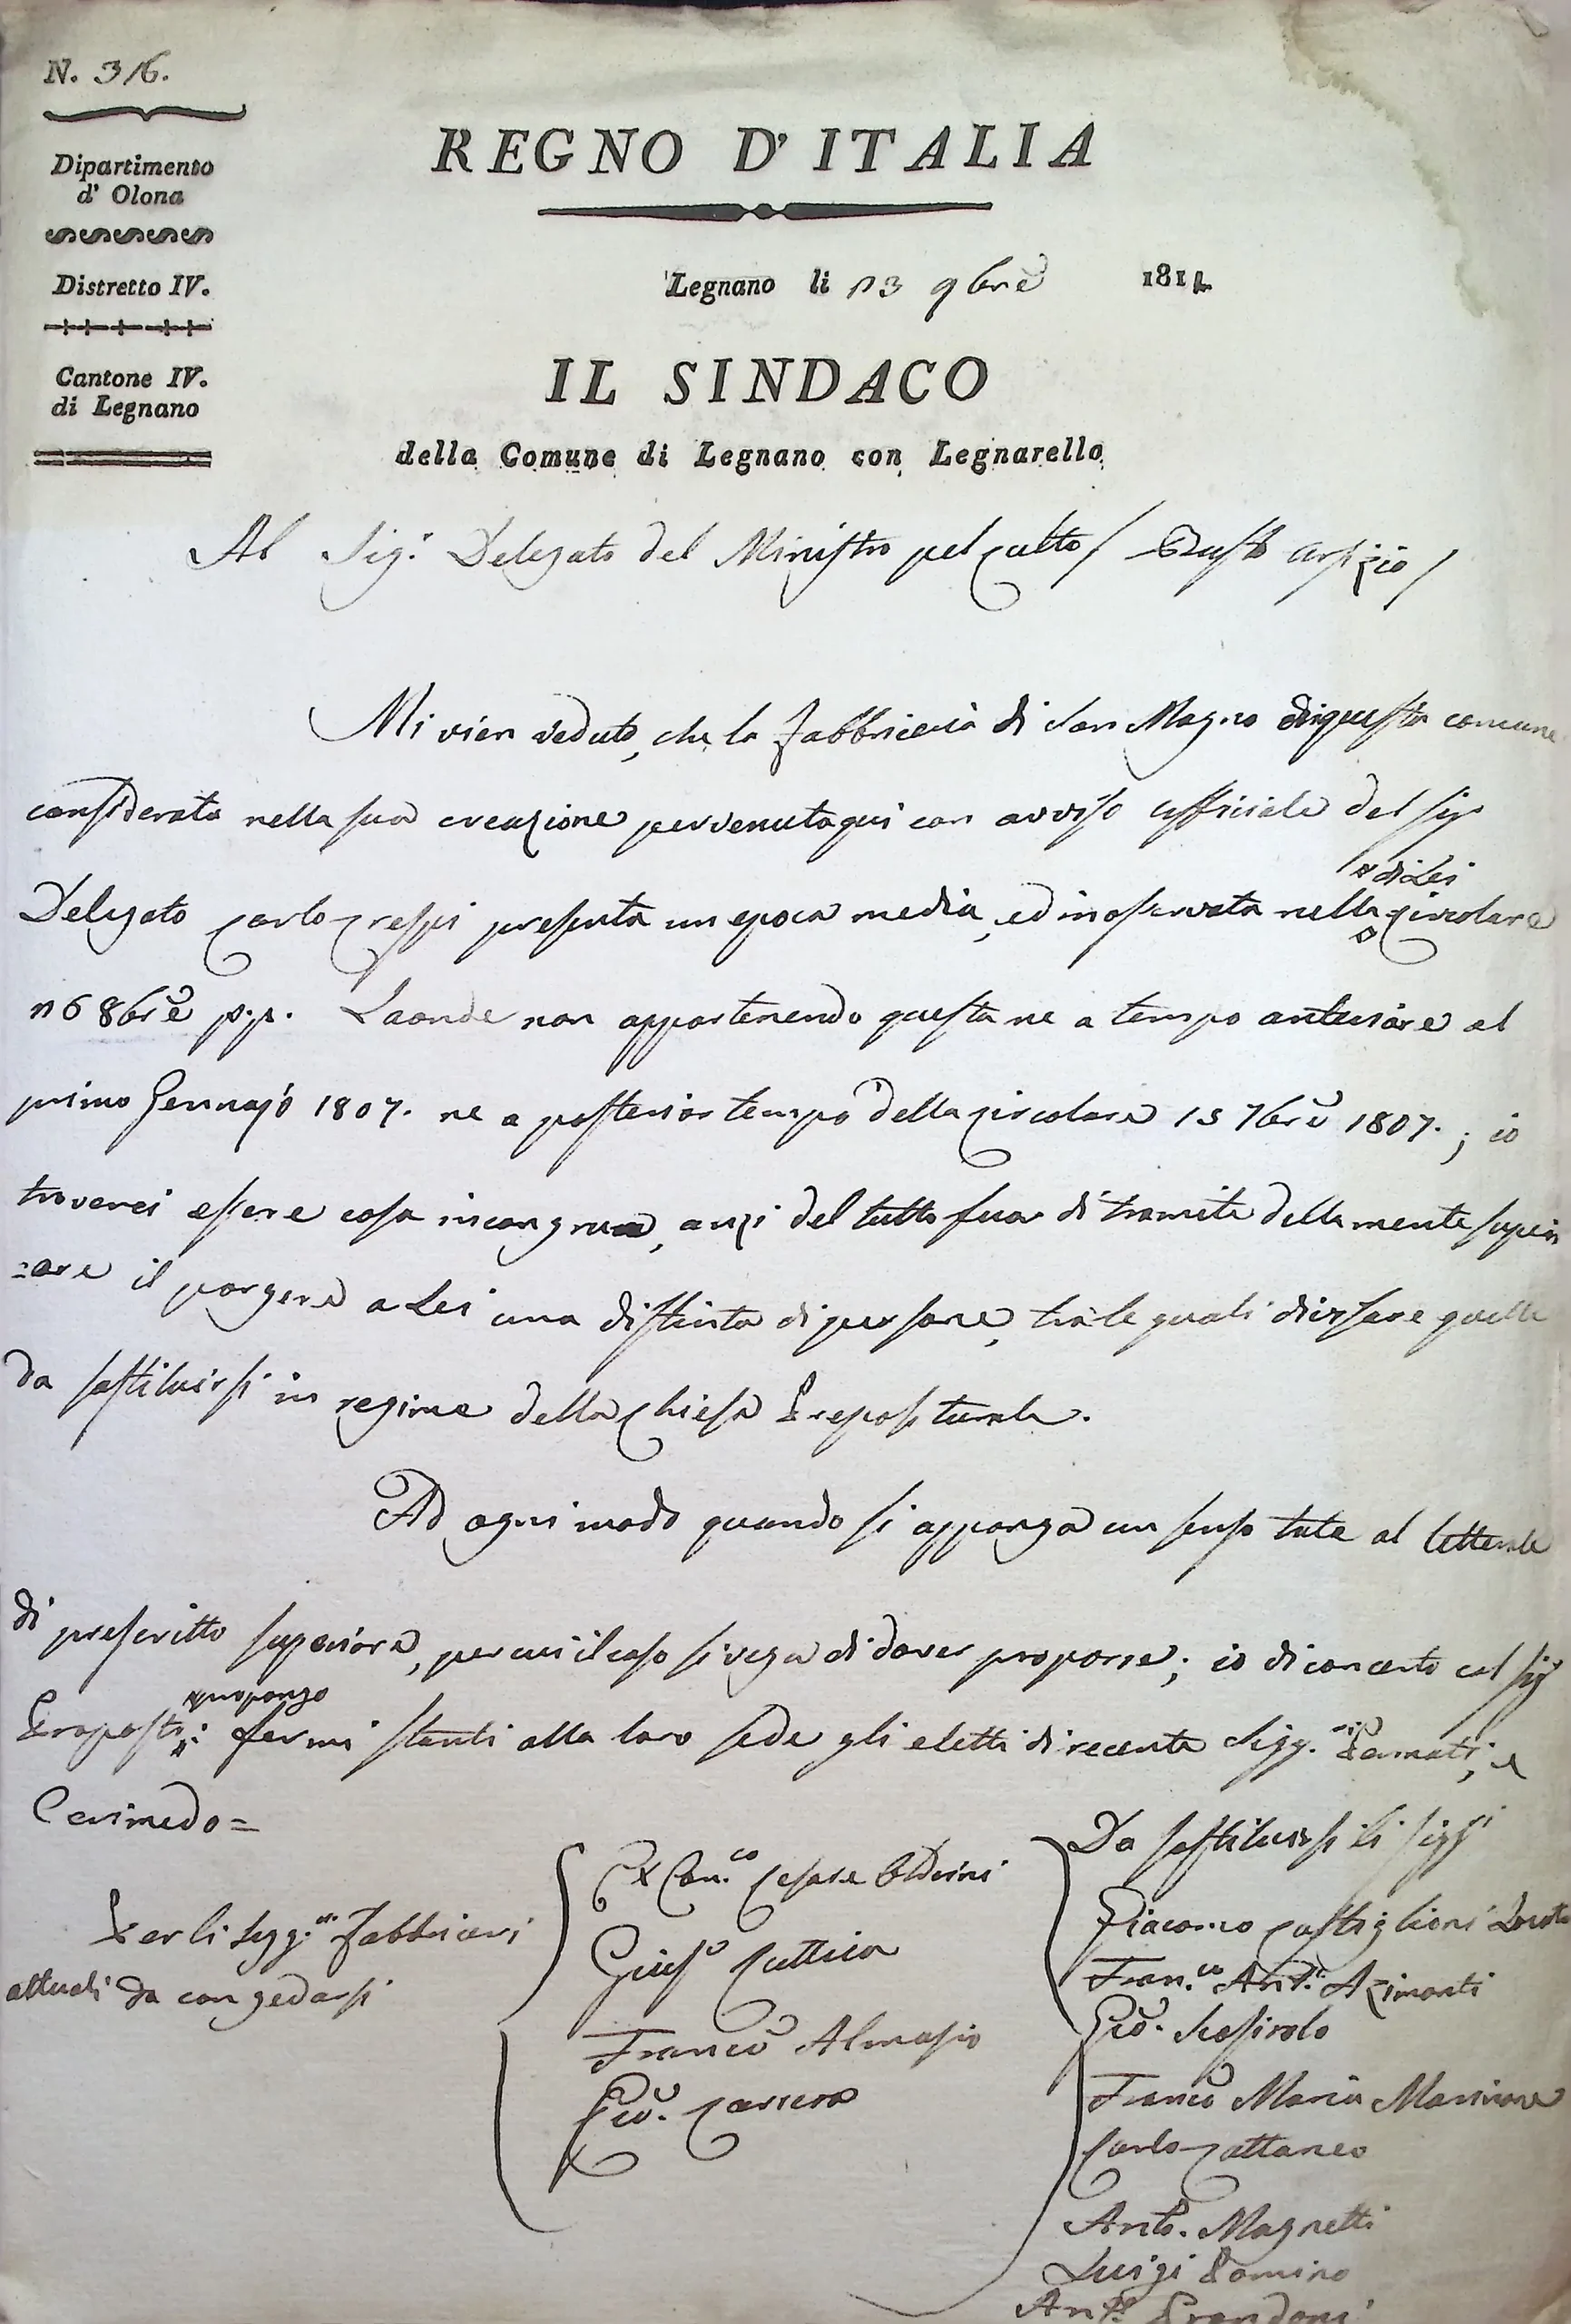 N. 316.
Dipartimento
d' Olona
Distretto IV.
Cantone IV.
di Legnano
REGNO D' ITALIA
Legnano li 13 9bre 1811
IL SINDACO
della Comune di Legnano con Legnarello
Al Sig.r Delegato del Ministro pel culto / Busto arsizio /
Mi vien veduto, che la Fabbriceria di San Magno di questa comune
considerata nella sua creazione pervenuta qui con avviso officiale del sigr
Delegato Carlo Crespi presenta un epoca media, ed inoservata nella circolare
di Lei
16 8bre p.p. Laonde non appartenendo questa ne a tempo anteriore al
primo Gennajo 1807. ne a posterior tempo della circolare 15 7bre 1807. ; io
troverei essere cosa incongrua, anzi del tutto fuor di tramite della mente superi
=ore il porgere a Lei una distinta di persone, tra le quali divisare quelle
da sostituirsi in regime della Chiesa Prepositurale.
Ad ogni modo quando si apponga un senso tale al letterale
di prescritto superiore, per cui il caso si vegga di dover proporre; io di concerto col sigr
propongo
Proposto: fermi stanti alla loro sede gli eletti di recente Sigg.ri Lamati, e
Cerimedo =
Per li Sigg.ri Fabbricieri
attuali da congedarsi
Ex Can.co Cesare Olderini
Gius.e Cuttica
Franco Almasio
Gio. Carrera
Da sostituirsi li sigg.ri
Giacomo Castiglioni
Fran.co Ant.o Azimonti
Gio. Scosirolo
Franco Maria
Carlo Cattaneo
Anto. Magnetti
Luigi
Anto.